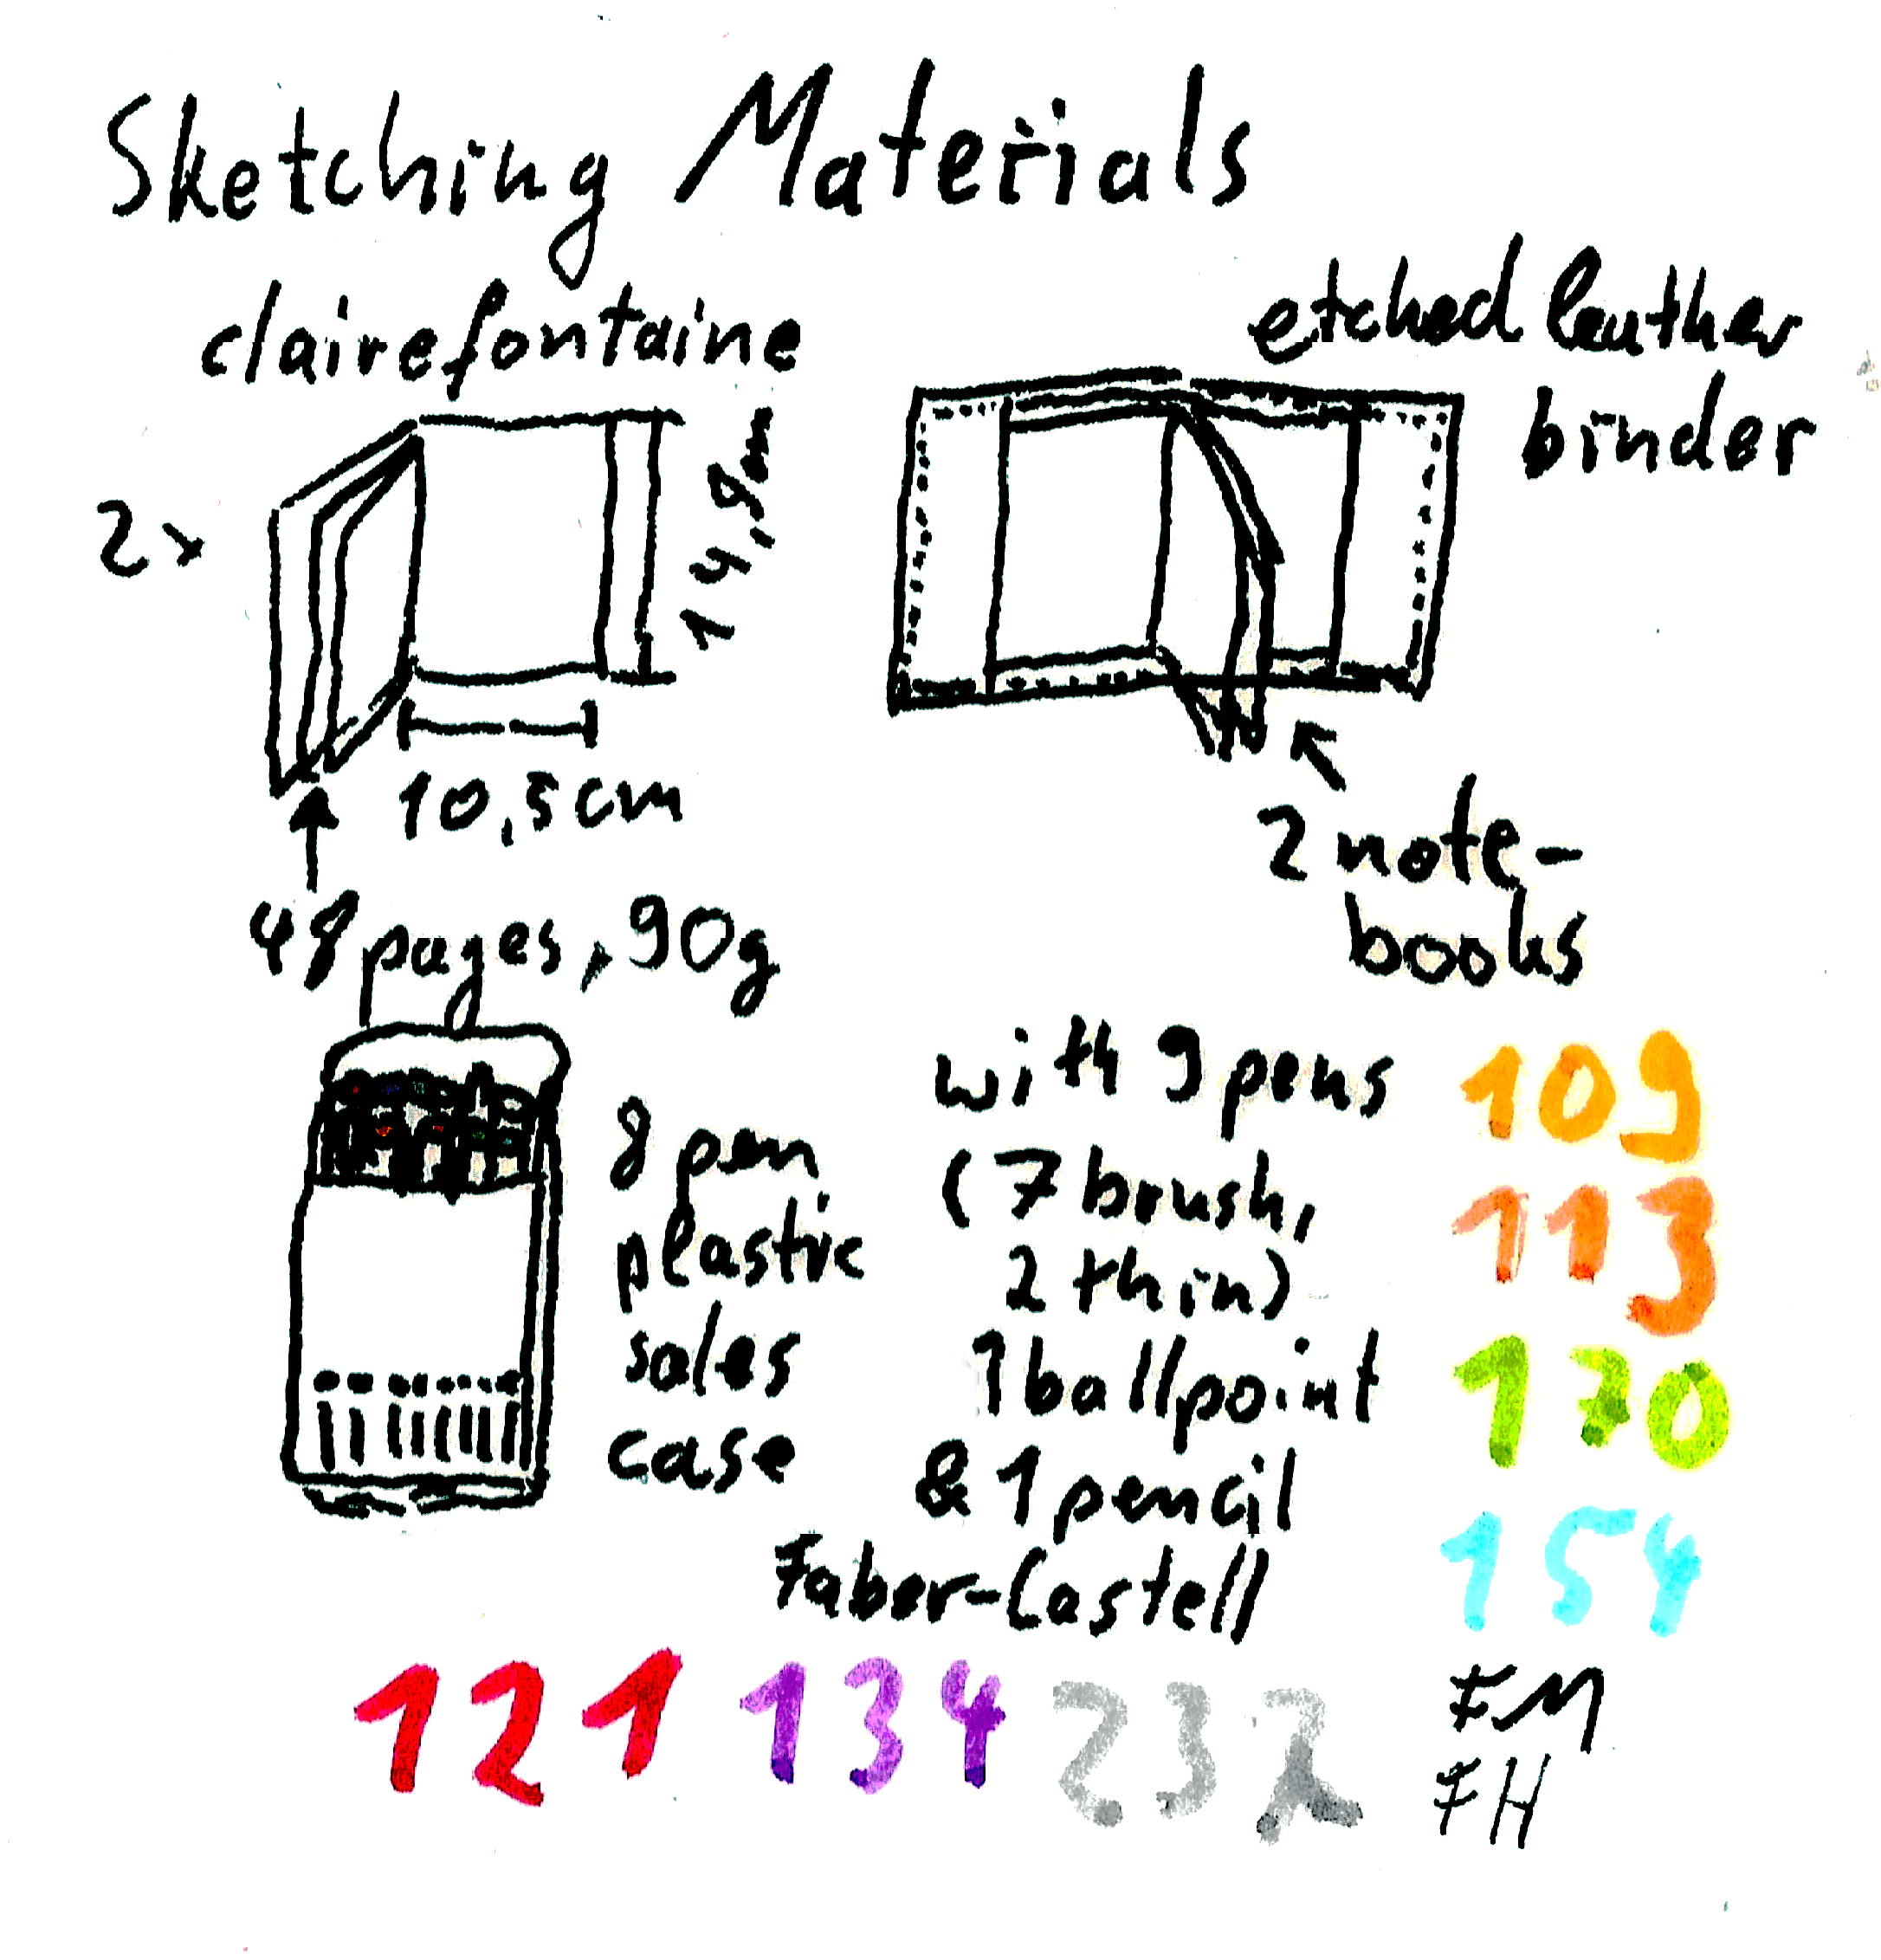 Sketching Materials
clairefontaine
etched leather
binder
2x
10,5cm
48 pages, 90g
2 note-
books
8 pen
plastic
sales
case
with 9 pens
(7 brush,
2 thin)
1 ballpoint
& 1 pencil
Faber-Castell
109
113
170
154
121 134 232
FM
FH